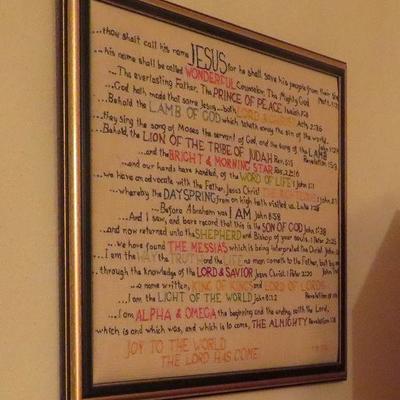 ...thou shalt call his name JESUS for he shall save his people from their sins
...his name shall be called WONDERFUL Counselor, The Mighty God
...The everlasting Father, The PRINCE OF PEACE Isaiah 9:6
...God hath made that same Jesus...both LORD & CHRIST Acts 2:36
...Behold the LAMB OF GOD which taketh away the sin of the world.
...they sing the song of Moses the servant of God, and the song of the LAMB
...Behold, the LION OF THE TRIBE OF JUDAH Rev. 5:5 Revelation 15:3
...and the BRIGHT & MORNING STAR Rev. 22:16
...and our hands have handled, of the WORD OF LIFE I John 1:1
...we have an advocate with the Father, Jesus Christ THE
...whereby the DAYSPRING from on high hath visited us. Luke 1:78
...Before Abraham was I AM John 8:58
...And I saw, and bare record that this is the SON OF GOD John 1:34
...and now returned unto the SHEPHERD and Bishop of your souls. I Peter 2:25
...we have found THE MESSIAS which is being interpreted the Christ John
...I am the WAY the TRUTH and the LIFE no man cometh to the Father, but by me
...through the knowledge of the LORD & SAVIOR Jesus Christ. II Peter 2:20 John
...a name written, KING OF KINGS and LORD OF LORDS
...I am the LIGHT OF THE WORLD John 8:12 Revelation
...I am ALPHA & OMEGA the beginning and the ending, saith the Lord,
which is and which was, and which is to come, THE ALMIGHTY Revelation 1:8
JOY TO THE WORLD
THE LORD HAS COME